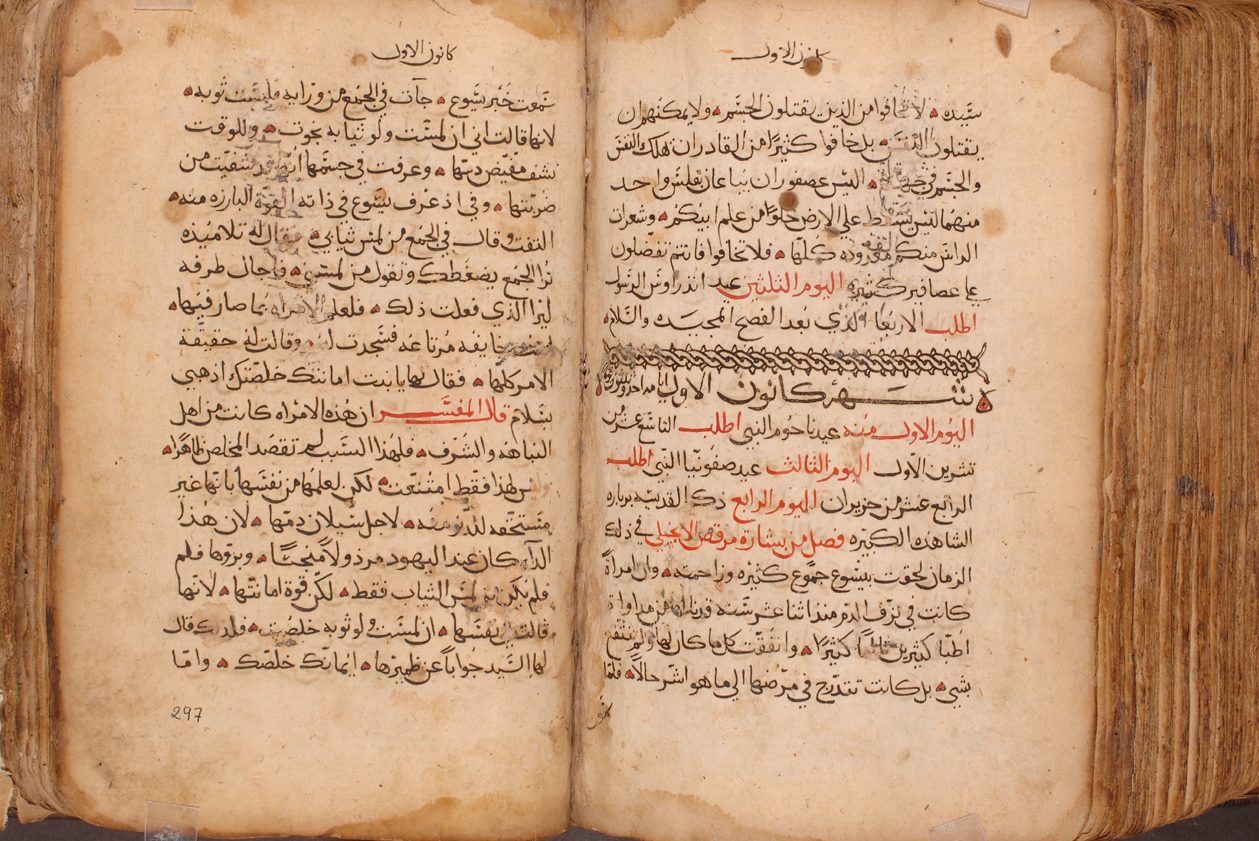 كانون الاول
سيده لا تخافوا من الذين يقتلون الجسم ولا يمكنهم ان
يقتلون النفس بل خافوا كثيرًا من القادر ان يهلك النفس
والجسم في الليس عصفوران يباعان بفلس واحد
منهما ليس يسقط علي الارض خلوًا من علم ابيكم وشعرات
الراس منكم معدوده كلها فلا تخافوا فانتم تفضلون
علي عصافير كثيره اليوم الثلثين عيد اندراوس الرسول
اطلب الاربعا الذي بعد الفصح المجيده والسلام
شهر كانون الاول
اليوم الاول منه عيد ناحوم النبي اطلب التاسع عشر من
تشرين الاول اليوم الثالث عيد صفونيا النبي اطلب
الرابع عشر من حزيران اليوم الرابع ذكر القديسه برباره
الشاهده الكبيره فصل من بشارة مرقص الانجيلي في ذلك
الزمان لحقت بيسوع جموع كثيره وزاحمته وان امراةً
كانت في نزف الدم منذ اثنا عشر سنه قد نالها من مداواة
اطبا كثيرين كثيرًا وانفقت كل ما كان لها ولم تنتفع
بشي بل كانت تتدرج في مرضها الي ما هو اشر حالاً فلما
كانون الاول
سمعت خبر يسوع جآت في الجمع من ورايه فلمست ثوبه
لانها قالت اني ان لمست ولو ثيابه نجوت وللوقت
نشف مفيض دمها وعرفت في جسمها انها قد شفيت من
ضربتها وفي اذ عرف يسوع في ذاته القوة البارزه منه
التفت وقال في الجمع من لمس ثيابي فقال له تلاميذه
ترا الجمع يضغطك وتقول من لمسني واجال طرفه
ليرا الذي فعلت ذلك فلعلم الامراه بما صار فيها
خايفه مرتاعه فسجدت له وقالت له حقيقة
الامر كلها فقال لها يا بنت امانتك خلصتك اذهبي
بسلام قال المفسر ان هذه الامراه كانت من اهل
النباهه والشرف فلهذا السبب لم تقصد المخلص ظاهرًا
لهذا فقط امتنعت لكن لعلمها من نفسها بانها غير
مستحقه للدنو منه لاجل سيلان دمها لان هذا
الدآء كان عند اليهود مرذولاً منجسًا وبروها فلم
فلم يكن لمس الثياب فقط لكن قوة امانتها لانها
قالت في نفسها ان لمست ولو ثوبه خلصت فلذلك قال
لها السيد جواباً عن ظهيرها ايمانك خلصك واما
297